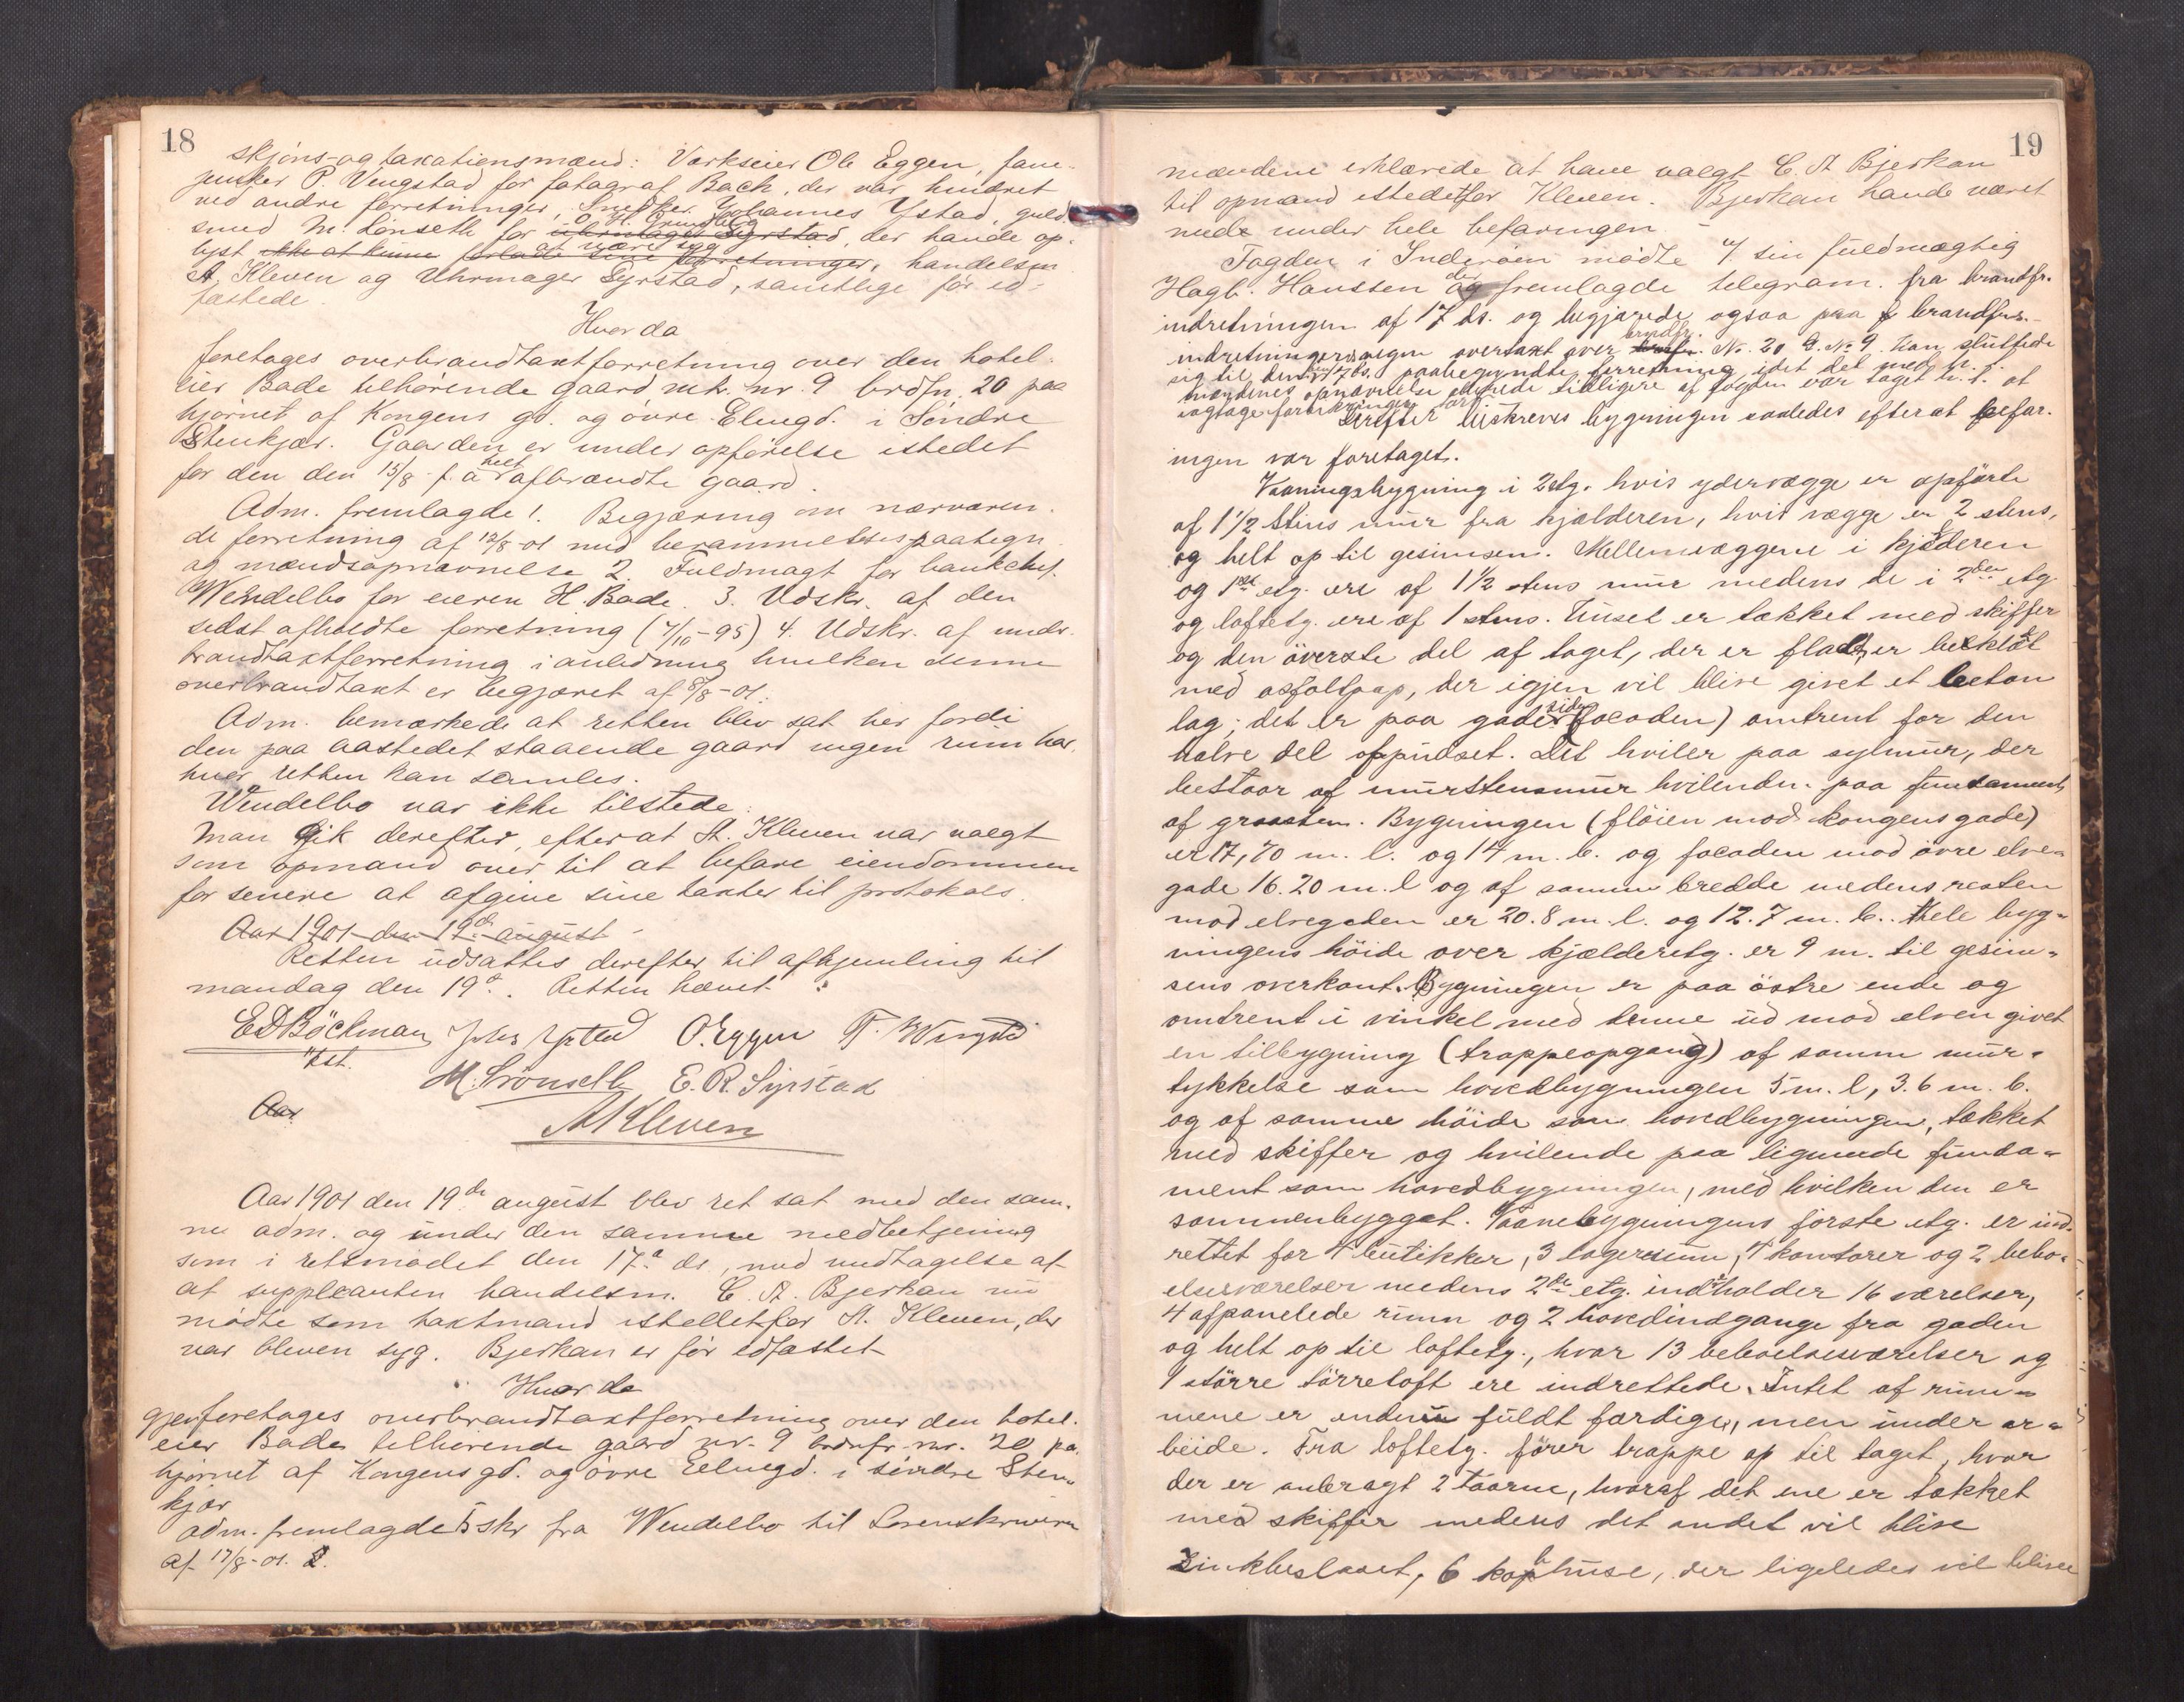 18
skjöns- og taxationsmænd: Værkseier Ole Eggen, fane-
junker P. Vengstad for fotograf Bach, der var hindret
ved andre forretninger, Snedker Johannes Ystad, guld-
smed M. Lönseth for uhrmager Syrstad, der havde op-
O. H.
lyst ikke at kunne forlade sine forretninger, handelsm.
at være syg
A. Kleven og Uhrmager Syrstad, samtlige för ed-
fæstede.
Hvorda
foretages overbrandtaxtforretning over den hotel-
eier Bade tilhörende gaard mtr. nr. 9 brdfn. 20 paa
hjörnet af Kongens gd. og övre Elvegd. i Söndre
Stenkjær. Gaarden er under opförelse istedet
for den den 15/8 f. a. helt afbrændte gaard.
Adm. fremlagde 1. Begjæring om nærværen-
de forretning af 12/8-01 med berammelsespaategn.
og mændsopnævnelse 2. Fuldmagt for bankchef
Wendelbo for eieren H. Bade. 3. Udskr. af den
sidst afholdte forretning (7/10-95) 4. Udskr. af under-
brandtaxtforretning i anledning hvilken denne
overbrandtaxt er begjæret af 8/8-01.
Adm. bemærkede at retten blev sat her fordi
den paa aastedet staaende gaard ingen rum har,
hvor retten kan samles.
Wendelbo var ikke tilstede.
Man gik derefter, efter at A. Kleven var valgt
som opmand over til at befare eiendommen
for senere at afgive sine taxter til protokols.
Aar 1901 den 19de august
Retten udsattes derefter til afhjemling til
mandag den 19de. Retten hævet.
EDBöckman Johs Ystad O. Eggen P. Wengstad
kst.
M. Lrönseth E. R. Syrstad
Aar
A Kleven
Aar 1901 den 19de august blev ret sat med den sam-
me adm. og under den samme medbetjening
som i retsmödet den 17de ds., med undtagelse af
at suppleanten handelsm. C. A. Bjerkan nu
mödte som taxtmand istedetfor A. Kleven, der
var bleven syg. Bjerkan er för edfæstet
Hvorda
gjenforetages overbrandtaxtforretning over den hotel-
eier Bade tilhörende gaard nr. 9 brdnfr. nr. 20 pa.
hjörnet af Kongensgd. og övre Elvegd. i söndre Sten-
kjær
Adm. fremlagde 5 skr. fra Wendelbo til Sorenskriveren
af 17/8-01.
19
mændene erklærede at have valgt C. A Bjerkan
til opmand istedetfor Kleven. Bjerkan havde været
med under hele befaringen.
Fogden i Inderöen mödte v/ sin fuldmægtig
Hagb. Hanssen der fremlagde telegram fra brandfr.
indretningen af 17 ds. og begjærede ogsaa paa brandfrs.-
indretningens vegne overtaxt over brandfr. No. 20 G. No 9. Han sluttede
sig til den 17 ds. paabegyndte forretning, idet det med h. t.
mændenes opnævnelse allerede tidligere af fogden var taget h. t. at
vagtage forsikringens tarv.
Derefter beskreves bygningen saaledes efterat befar-
ingen var foretaget.
Vaaningsbygning i 2etg. hvis ydervægge er opförte
af 1 1/2 Stens mur fra kjælderen, hvis vægge er 2 stens,
og helt op til gesimsen. Mellemvæggene i kjælderen
og 1ste etg. ere af 1 1/2 stens mur medens de i 2den etg.
og loftetg. ere af 1 stens. Huset er tækket med skiffer
og den överste del af taget, der er fladt, er beklædt
med asfaltpap, der igjen vil blive givet et beton
lag; det er paa gadesiden (facaden) omtrent for den
halve del oppudset. Det hviler paa sylmur, der
bestaar af murstensmur hvilende paa fundament
af graasten. Bygningen (flöien mod kongensgade)
er 17,70 m. l. og 14 m. b. og facaden mod övre elve-
gade 16.20 m. l og af samme bredde medens resten
mod elvegaden er 20.8 m. l. og 12.7 m. b. Hele byg-
ningens höide over kjælderetg. er 9 m. til gesim-
sens overkant. Bygningen er paa östre ende og
omtrent i vinkel med denne ud mod elven givet
en tilbygning (trappeopgang) af samme mur-
tykkelse som hovedbygningen 5 m. l, 3.6 m. b.
og af samme höide som hovedbygningen, tækket
med skiffer og hvilende paa lignende funda-
ment som hovedbygningen, med hvilken den er
sammenbygget. Vaanebygningens förste etg. er ind-
rettet for 4 butikker, 3 lagerrum, 4 kontorer og 2 bebo-
elsesværelser medens 2den etg. indeholder 16 værelser,
4 afpanelede rum og 2 hovedindgange fra gaden
og helt op til loftetg., hvor 13 beboelsesværelser og
1 större törreloft ere indrettede. Intet af rum-
mene er endnu fuldt færdige, men under ar-
beide. Fra loftetg. förer trappe op til taget, hvor
der er anbragt 2 taarne, hvoraf det ene er tækket
med skiffer medens det andet vil blive
zinkbeslaaet, 6 kophuse, der ligeledes vil blive